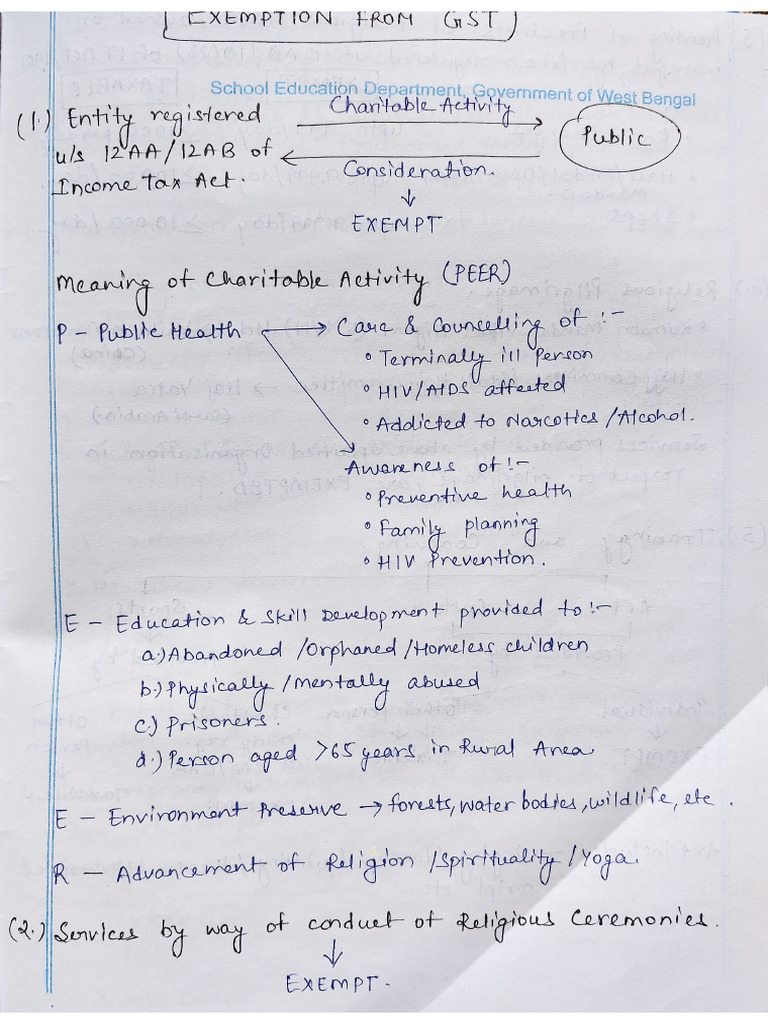 EXEMPTION FROM GST
School Education Department, Government of West Bengal
(1.) Entity registered
u/s 12AA/12AB of
Income Tax Act.
Charitable Activity
Public
Consideration.
↓
EXEMPT
Meaning of Charitable Activity (PEER)
P - Public Health → Care & Counselling of :-
• Terminally ill Person
• HIV/AIDS affected
• Addicted to Narcotics/Alcohol.
Awareness of :-
• Preventive health
• Family planning
• HIV Prevention.
E - Education & Skill Development provided to :-
a.) Abandoned/Orphaned/Homeless children
b.) Physically/Mentally abused
c.) Prisoners.
d.) Person aged >65 years in Rural Area
E - Environment Preserve → forests, water bodies, wildlife, etc.
R - Advancement of Religion/Spirituality/Yoga.
(2.) Services by way of conduct of Religious Ceremonies.
↓
EXEMPT.